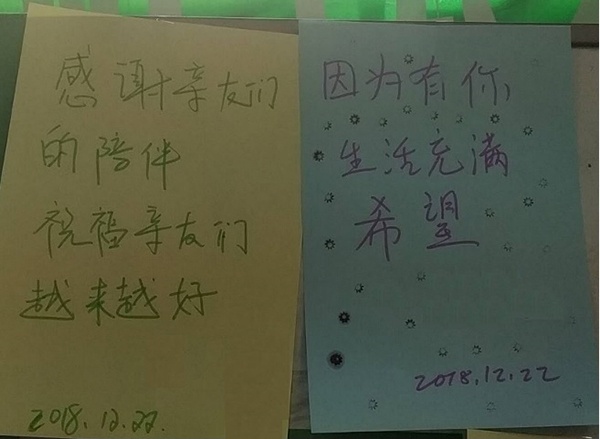 感謝亲友们
的陪伴
祝福亲友们
越来越好
2018.12.22.
因为有你,
生活充满
希望
2018.12.22